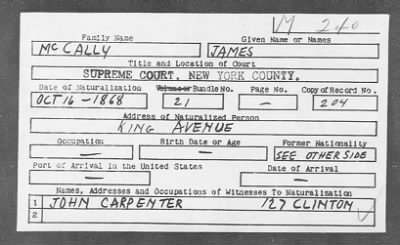 M 240
Family Name Given Name or Names
McCALLY JAMES
Title and Location of Court
SUPREME COURT, NEW YORK COUNTY.
Date of Naturalization Volume or Bundle No. Page No. Copy of Record No.
OCT 16 - 1868 21 — 204
Address of Naturalized Person
KING AVENUE
Occupation Birth Date or Age Former Nationality
— — SEE OTHER SIDE
Port of Arrival in the United States Date of Arrival
— —
Names, Addresses and Occupations of Witnesses To Naturalization
1 JOHN CARPENTER 127 CLINTON
2